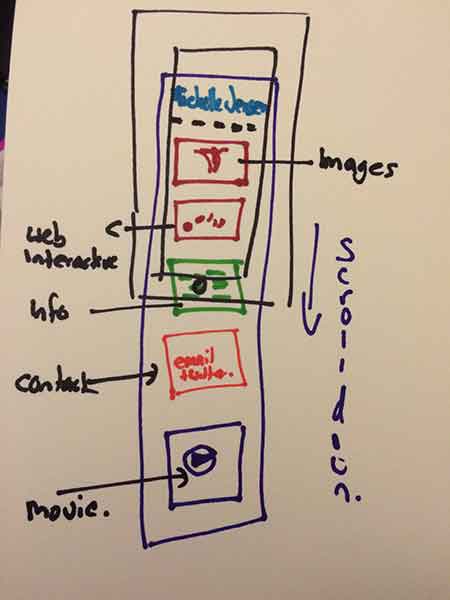 Michelle Jensen
Images
web
Interactive
Info
email
twitter.
contact
movie.
scroll down.